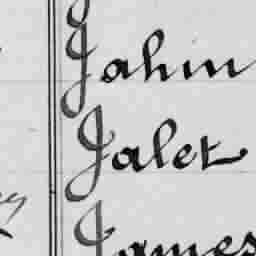 Jahin
Jalet
James